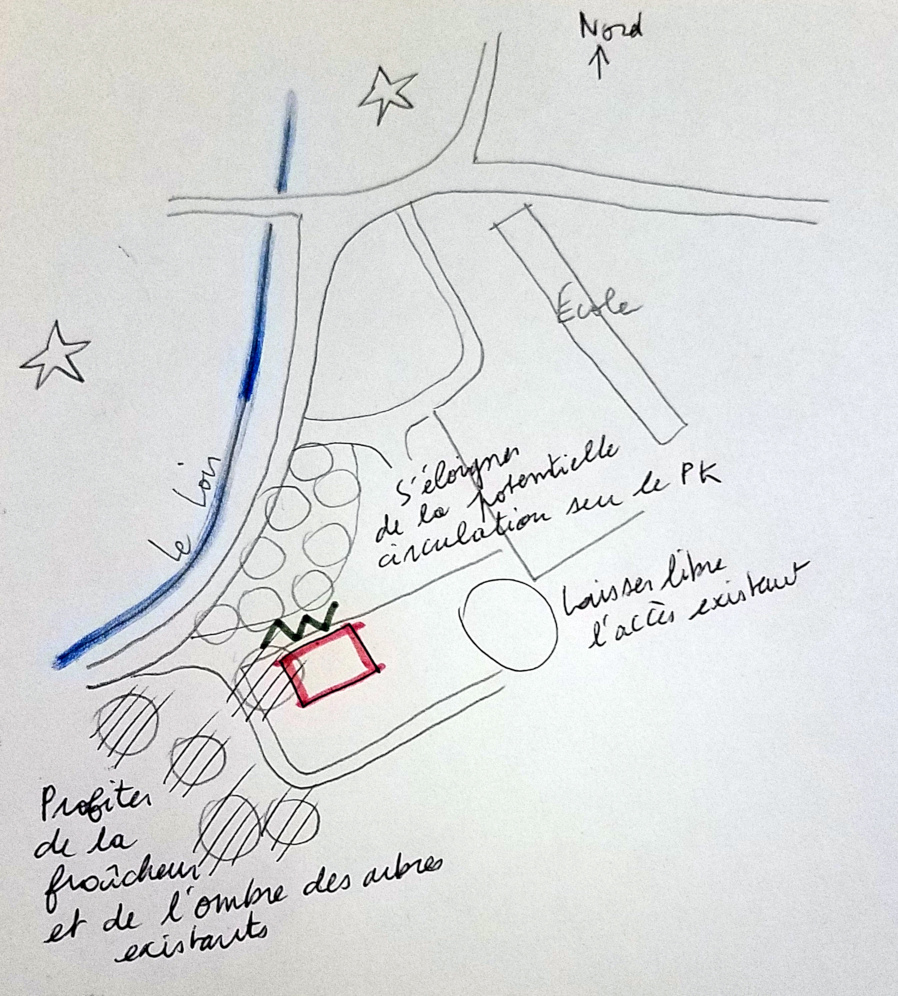 Nord
↑
Ecole
S'éloigner
de la potentielle
circulation sur le PK
Le Loir
Laisser libre
l'accès existant
Profiter
de la
fraîcheur
et de l'ombre des arbres
existants